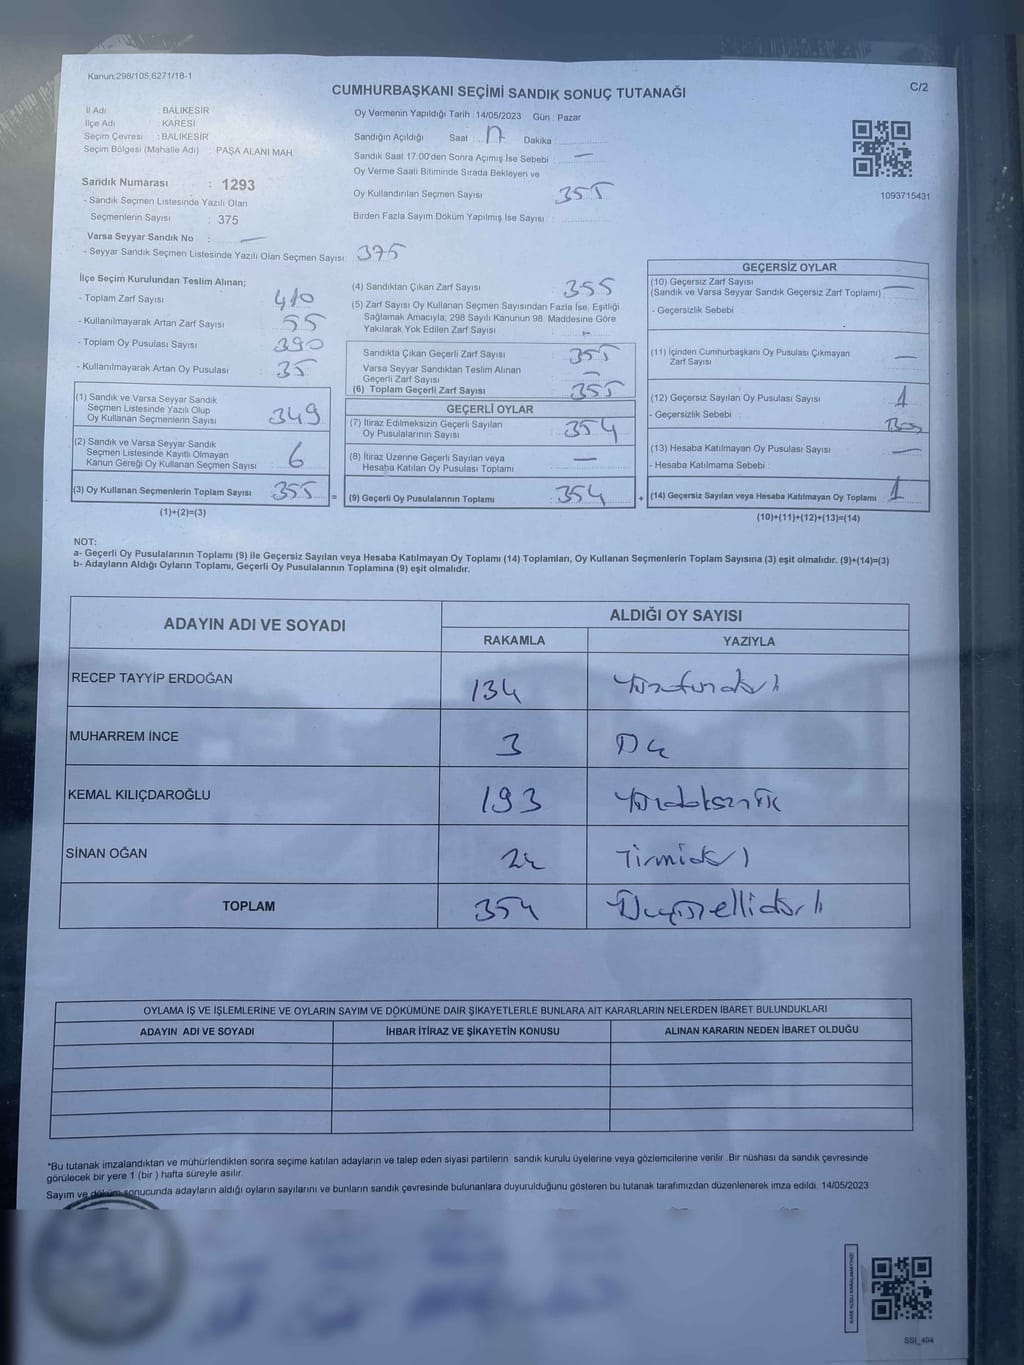 Kanun:298/105,6271/18-1
C/2
CUMHURBAŞKANI SEÇİMİ SANDIK SONUÇ TUTANAĞI
İl Adı : BALIKESİR
İlçe Adı : KARESİ
Seçim Çevresi : BALIKESİR
Seçim Bölgesi (Mahalle Adı) : PAŞA ALANI MAH.
Sandık Numarası : 1293
- Sandık Seçmen Listesinde Yazılı Olan
Seçmenlerin Sayısı : 375
Varsa Seyyar Sandık No : —
- Seyyar Sandık Seçmen Listesinde Yazılı Olan Seçmen Sayısı: 375
Oy Vermenin Yapıldığı Tarih : 14/05/2023 Gün : Pazar
Sandığın Açıldığı Saat : 17 Dakika :
Sandık Saat 17:00'den Sonra Açımış İse Sebebi : —
Oy Verme Saati Bitiminde Sırada Bekleyen ve
Oy Kullandırılan Seçmen Sayısı 355
Birden Fazla Sayım Döküm Yapılmış İse Sayısı :
1093715431
İlçe Seçim Kurulundan Teslim Alınan;
- Toplam Zarf Sayısı 410
- Kullanılmayarak Artan Zarf Sayısı 55
- Toplam Oy Pusulası Sayısı 390
- Kullanılmayarak Artan Oy Pusulası 35
(1) Sandık ve Varsa Seyyar Sandık
Seçmen Listesinde Yazılı Olup
Oy Kullanan Seçmenlerin Sayısı 349
(2) Sandık ve Varsa Seyyar Sandık
Seçmen Listesinde Kayıtlı Olmayan
Kanun Gereği Oy Kullanan Seçmen Sayısı 6
(3) Oy Kullanan Seçmenlerin Toplam Sayısı 355 =
(1)+(2)=(3)
(4) Sandıktan Çıkan Zarf Sayısı 355
(5) Zarf Sayısı Oy Kullanan Seçmen Sayısından Fazla İse, Eşitliği
Sağlamak Amacıyla; 298 Sayılı Kanunun 98. Maddesine Göre
Yakılarak Yok Edilen Zarf Sayısı
Sandıkta Çıkan Geçerli Zarf Sayısı 355
Varsa Seyyar Sandıktan Teslim Alınan
Geçerli Zarf Sayısı —
(6) Toplam Geçerli Zarf Sayısı 355
GEÇERLİ OYLAR
(7) İtiraz Edilmeksizin Geçerli Sayılan
Oy Pusulalarının Sayısı 354
(8) İtiraz Üzerine Geçerli Sayılan veya
Hesaba Katılan Oy Pusulası Toplamı —
(9) Geçerli Oy Pusulalarının Toplamı 354 +
GEÇERSİZ OYLAR
(10) Geçersiz Zarf Sayısı
(Sandık ve Varsa Seyyar Sandık Geçersiz Zarf Toplamı) —
- Geçersizlik Sebebi :
(11) İçinden Cumhurbaşkanı Oy Pusulası Çıkmayan
Zarf Sayısı —
(12) Geçersiz Sayılan Oy Pusulası Sayısı 1
- Geçersizlik Sebebi : Boş
(13) Hesaba Katılmayan Oy Pusulası Sayısı —
- Hesaba Katılmama Sebebi :
(14) Geçersiz Sayılan veya Hesaba Katılmayan Oy Toplamı 1
(10)+(11)+(12)+(13)=(14)
NOT:
a- Geçerli Oy Pusulalarının Toplamı (9) ile Geçersiz Sayılan veya Hesaba Katılmayan Oy Toplamı (14) Toplamları, Oy Kullanan Seçmenlerin Toplam Sayısına (3) eşit olmalıdır. (9)+(14)=(3)
b- Adayların Aldığı Oyların Toplamı, Geçerli Oy Pusulalarının Toplamına (9) eşit olmalıdır.
ADAYIN ADI VE SOYADI
ALDIĞI OY SAYISI
RAKAMLA YAZIYLA
RECEP TAYYİP ERDOĞAN 134
MUHARREM İNCE 3
KEMAL KILIÇDAROĞLU 193
SİNAN OĞAN 24
TOPLAM 354
OYLAMA İŞ VE İŞLEMLERİNE VE OYLARIN SAYIM VE DÖKÜMÜNE DAİR ŞİKAYETLERLE BUNLARA AİT KARARLARIN NELERDEN İBARET BULUNDUKLARI
ADAYIN ADI VE SOYADI İHBAR İTİRAZ VE ŞİKAYETİN KONUSU ALINAN KARARIN NEDEN İBARET OLDUĞU
*Bu tutanak imzalandıktan ve mühürlendikten sonra seçime katılan adayların ve talep eden siyasi partilerin sandık kurulu üyelerine veya gözlemcilerine verilir .Bir nüshası da sandık çevresinde
görülecek bir yere 1 (bir ) hafta süreyle asılır.
Sayım ve döküm sonucunda adayların aldığı oyların sayılarını ve bunların sandık çevresinde bulunanlara duyurulduğunu gösteren bu tutanak tarafımızdan düzenlenerek imza edildi. 14/05/2023
SSİ_404